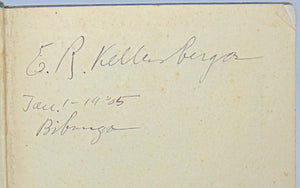 E. R. Kellersberger
Jan. 1 - 19'35
Bibanga